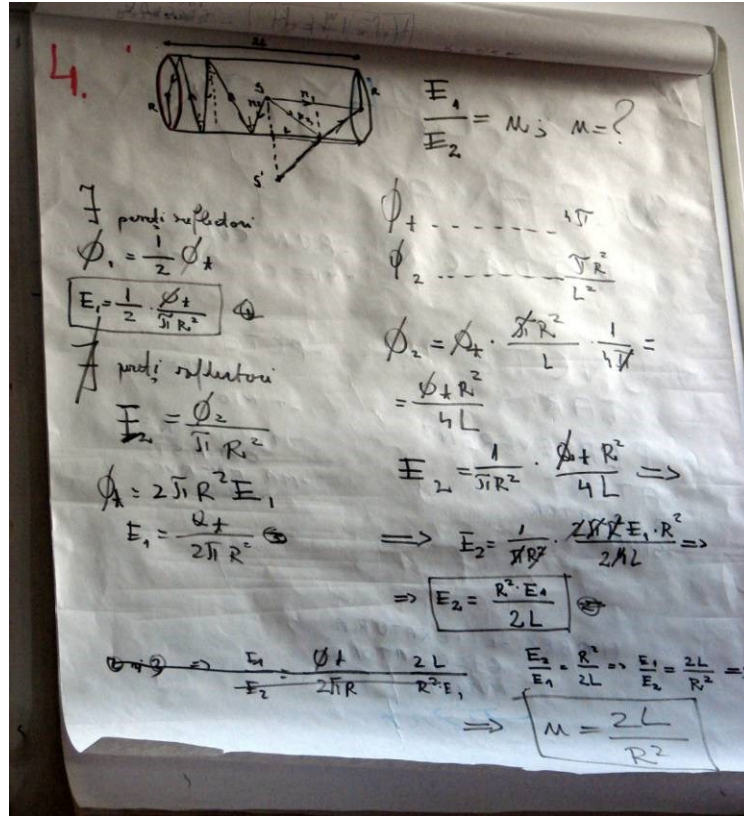 4.
2L
R
S
R
S'
E₁/E₂ = n; n=?
∃ pereți reflectori
Φ₁ = 1/2 Φt
E₁ = 1/2 · Φt/πR² ①
∄ pereți reflectori
E₂ = Φ₂/πR²
Φt = 2πR²E₁
E₁ = Φt/2πR²
Φt ------- 4π
Φ₂ ------- πR²/L²
Φ₂ = Φt · πR²/L · 1/4π =
= Φt R²/4L
E₂ = 1/πR² · Φt R²/4L =>
=> E₂ = 1/πR² · 2πR²E₁·R²/4L =>
=> E₂ = R²·E₁/2L ②
=> E₁/E₂ = Φt/2πR 2L/R²·E₁
E₂/E₁ = R²/2L => E₁/E₂ = 2L/R² =>
=> n = 2L/R²